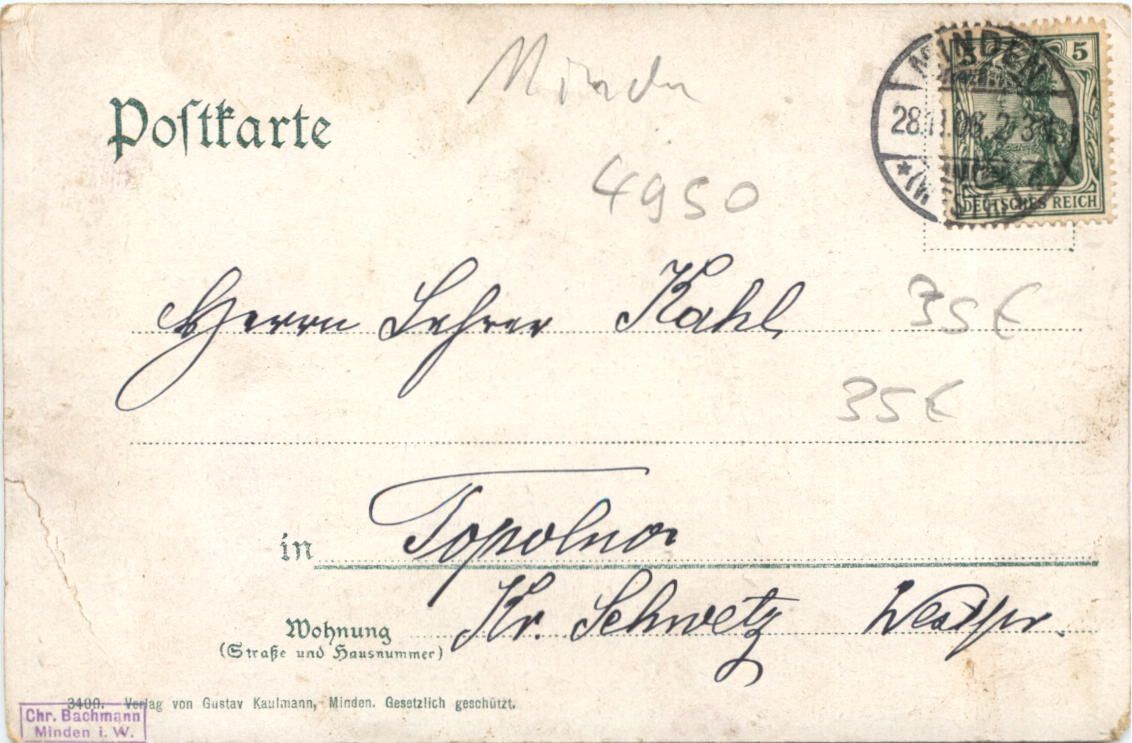 Postkarte
Minden
4950
MINDEN
28.11.06. 2-3N
*(WESTF.)*
5 5
DEUTSCHES REICH
Herrn Lehrer Kahl
35€
35€
in Topolno
Kr. Schwetz Westpr.
Wohnung
(Straße und Hausnummer)
3400. Verlag von Gustav Kaufmann, Minden. Gesetzlich geschützt.
Chr. Bachmann
Minden i. W.